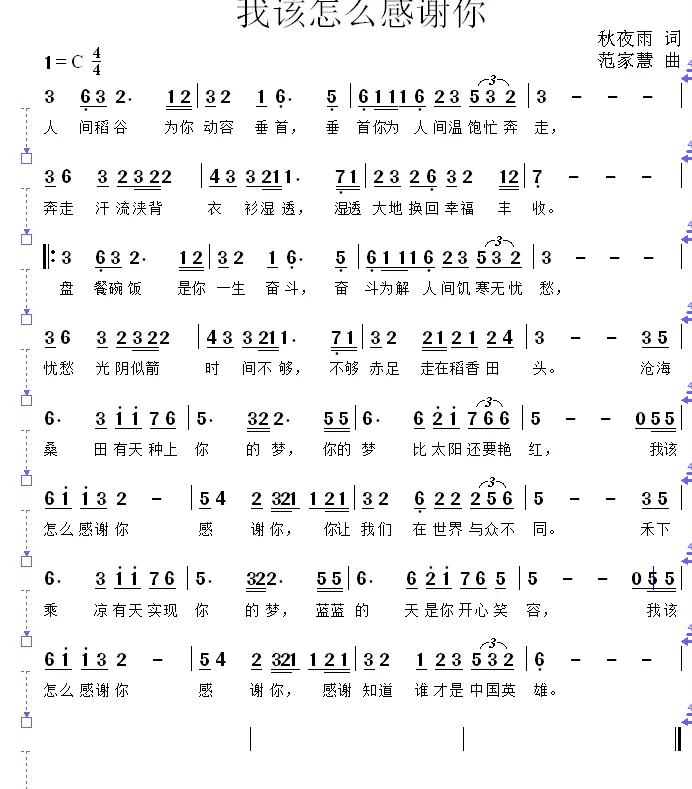 我该怎么感谢你
秋夜雨 词
1=C 4/4
范家慧 曲
3 6 3 2· 1 2 | 3 2 1 6· 5 | 6 1 1 1 6 2 3 5 3 2 (3) | 3 - - - |
人 间稻谷 为你 动容 垂首， 垂 首你为 人间温饱忙奔 走，
3 6 3 2 3 2 2 | 4 3 3 2 1 1· 7 1 | 2 3 2 6 3 2 1 2 | 7 - - - |
奔走 汗流浃背 衣 衫湿透， 湿透 大地换回幸福 丰 收。
‖: 3 6 3 2· 1 2 | 3 2 1 6· 5 | 6 1 1 1 6 2 3 5 3 2 (3) | 3 - - - |
盘 餐碗饭 是你 一生 奋斗， 奋 斗为解 人间饥寒无忧 愁，
3 6 3 2 3 2 2 | 4 3 3 2 1 1· 7 1 | 3 2 2 1 2 1 2 4 | 3 - - 3 5 |
忧愁 光阴似箭 时 间不够， 不够 赤足 走在稻香田 头。 沧海
6· 3 i i 7 6 | 5· 3 2 2· 5 5 | 6· 6 2 i 7 6 6 (3) | 5 - - 0 5 5 |
桑 田有天种上 你 的梦， 你的梦 比太阳还要艳 红， 我该
6 i i 3 2 - | 5 4 2 3 2 1 1 2 1 | 3 2 6 2 2 2 5 6 (3) | 5 - - 3 5 |
怎么感谢你 感 谢你， 你让 我们 在世界与众不 同。 禾下
6· 3 i i 7 6 | 5· 3 2 2· 5 5 | 6· 6 2 i 7 6 5 | 5 - - 0 5 5 |
乘 凉有天实现 你 的梦， 蓝蓝的 天是你开心笑 容， 我该
6 i i 3 2 - | 5 4 2 3 2 1 1 2 1 | 3 2 1 2 3 5 3 2 (3) | 6 - - - |
怎么感谢你 感 谢你， 感谢 知道 谁才是中国英 雄。